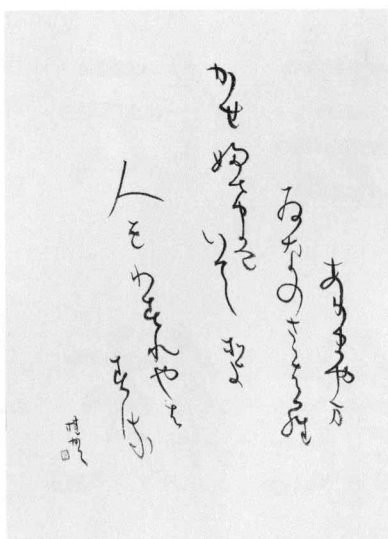 ありまや万
ゐなのさゝはら
かせ婦けは
いてそよ
人をわすれやは
する